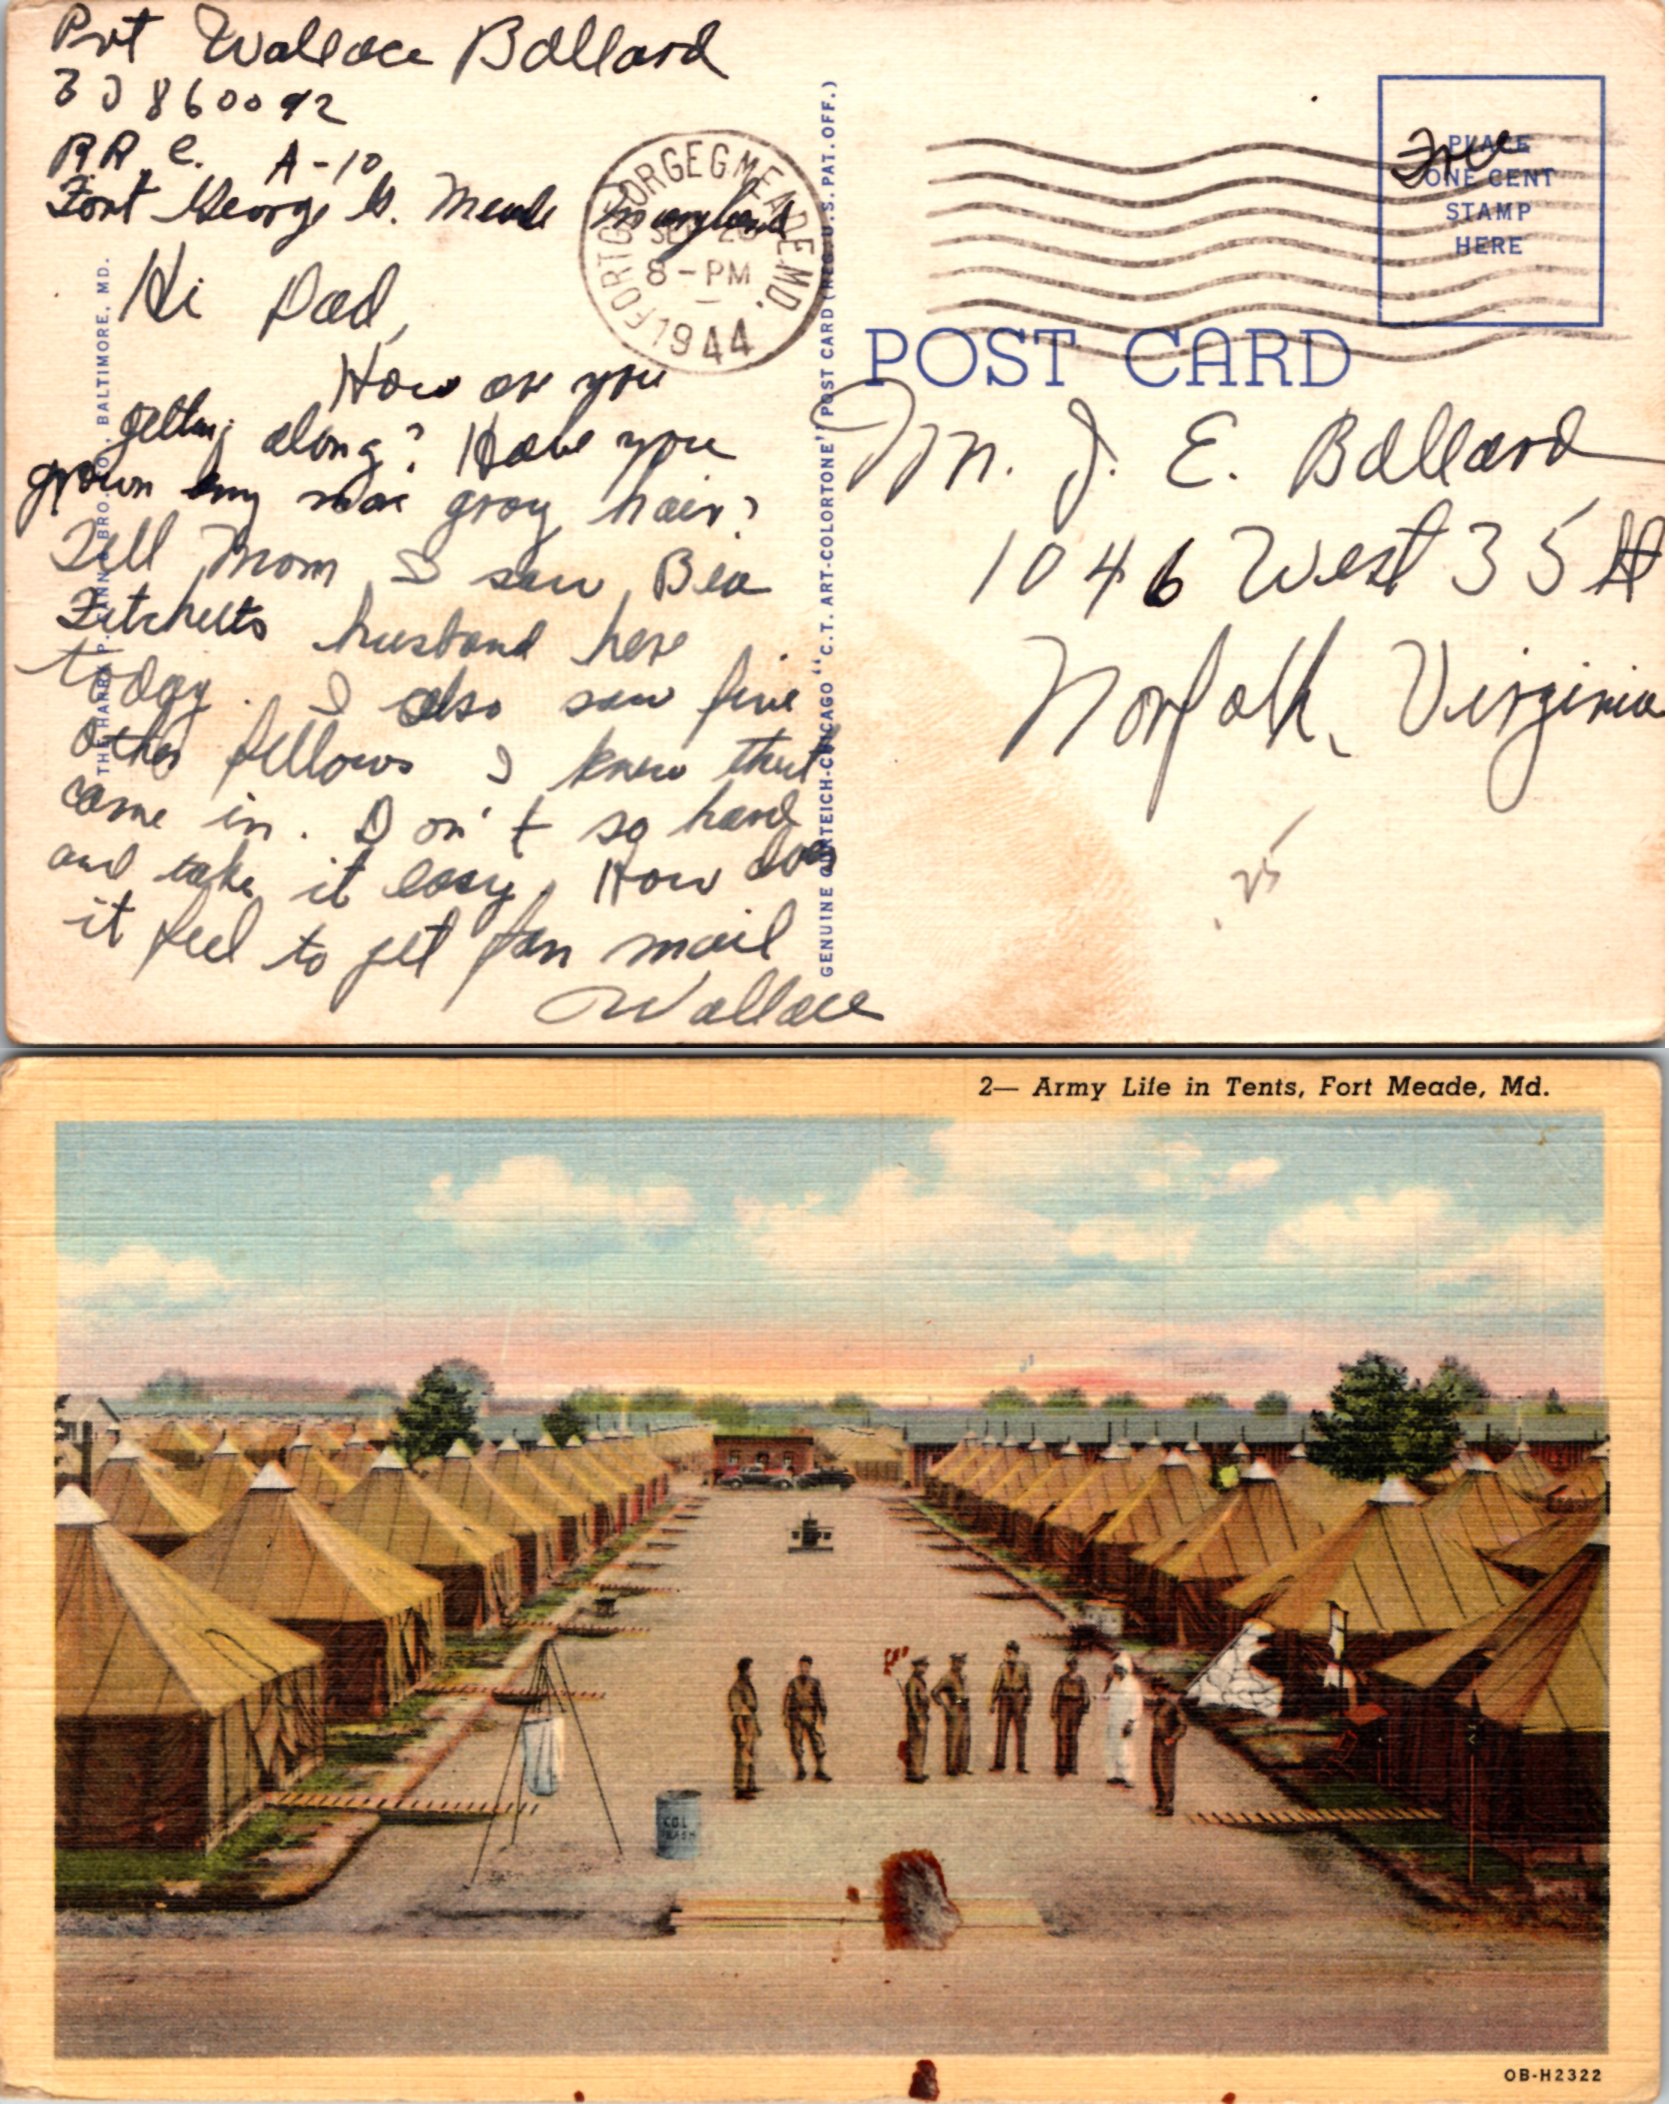 Pvt Wallace Ballard
33860092
R R C. A-10
Fort George G. Meade Maryland
FORT GEORGE G MEADE MD.
SEP 26
8 - PM
1944
Free
PLACE
ONE CENT
STAMP
HERE
POST CARD
Hi Dad,
How are you
getting along? Have you
grown any more gray hair?
Tell Mom I saw Bea
Fitchetts husband here
today. I also saw five
other fellows I knew that
came in. Don't so hard
and take it easy. How does
it feel to get fan mail
Wallace
BALTIMORE, MD.
GENUINE CURTEICH-CHICAGO "C.T. ART-COLORTONE" POST CARD (REG. U.S. PAT. OFF.)
Mr. J. E. Ballard
1046 West 35 St
Norfolk, Virginia
.25
2— Army Life in Tents, Fort Meade, Md.
OB-H2322